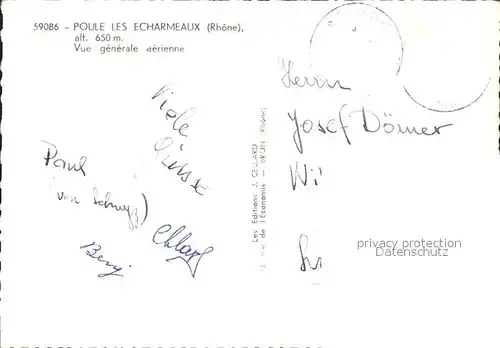 59086 - POULE LES ECHARMEAUX (Rhône),
alt. 650 m.
Vue générale aérienne
Viele
Grüsse
Paul
(von
Beny
Les Editions J. CELLARD
de l'Economie — BRON (Rhône)
Herrn
Josef Dörner
privacy protection
Datenschutz